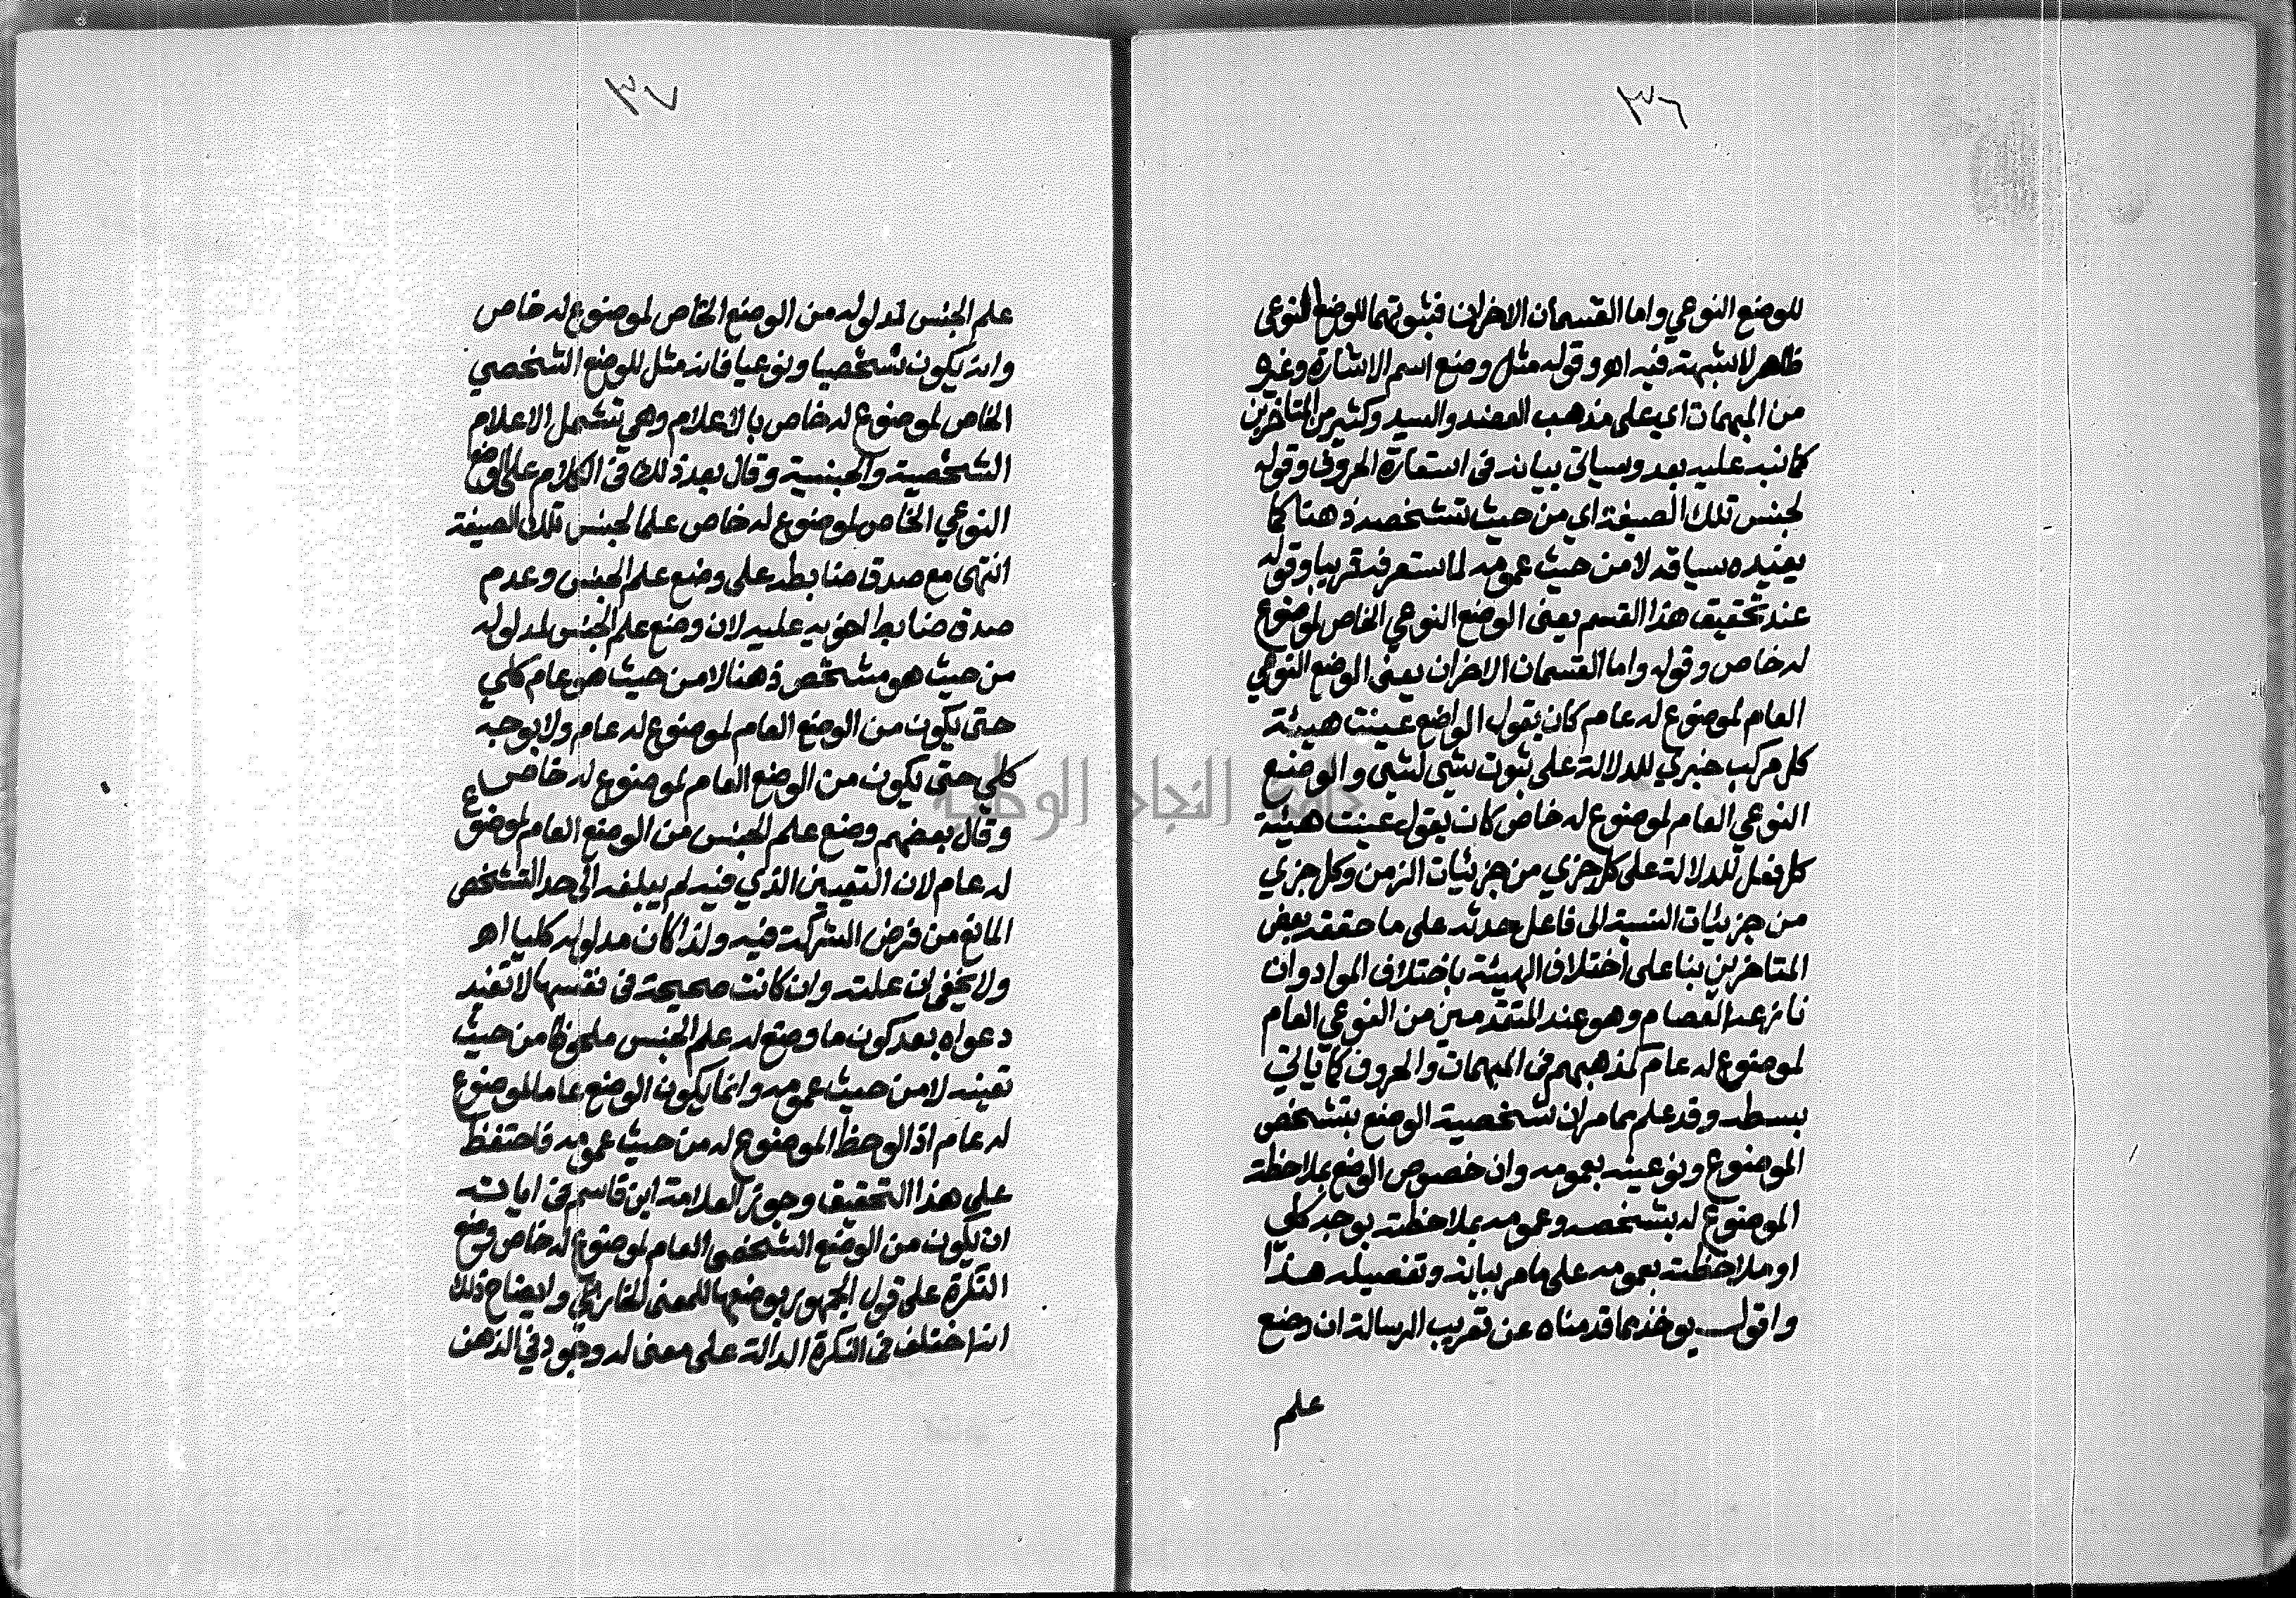 ٣٦
للوضع النوعي واما القسمان الاخران فثبوتهما للوضع النوعي
ظاهر لا شبهة فيه اهـ وقوله مثل وضع اسم الاشارة وغيره
من المبهمات اي على مذهب العضد والسيد وكثير من المتاخرين
كما نبه عليه بعد وسياتي بيانه في استعارة الحروف وقوله
لجنس تلك الصيغة اي من حيث تشخصه ذهنا كما
يفيده سياقه لا من حيث عمومه لما ستعرفه قريبا وقوله
عند تحقيق هذا القسم يعني الوضع النوعي الخاص لموضوع
له خاص وقوله واما القسمان الاخران يعني الوضع النوعي
العام لموضوع له عام كان يقول الواضع عينت هيئة
كل مركب خبري للدلالة على ثبوت شي لشي والوضع
النوعي العام لموضوع له خاص كان يقول عينت هيئة
كل فعل للدلالة على كل جزي من جزئيات الزمن وكل جزي
من جزئيات النسبة الى فاعل حدثه على ما حققه بعض
المتاخرين بنا على اختلاف الهيئة باختلاف المواد وان
نازعه العصام وهو عند المتقدمين من النوعي العام
لموضوع له عام كمذهبهم في المبهمات والحروف كما ياتي
بسطه وقد علم مما مر ان شخصية الوضع بتشخص
الموضوع ونوعيته بعمومه وان خصوص الوضع بملاحظة
الموضوع له بشخصه وعمومه بملاحظته بوجه كلي
او ملاحظته بعمومه على ما مر بيانه وتفصيله هذا
واقول يوخذ مما قدمناه عن تعريب الرسالة ان وضع
علم
٣٧
علم الجنس لمدلوله من الوضع الخاص لموضوع له خاص
وانه يكون شخصيا ونوعيا فانه مثل للوضع الشخصي
الخاص لموضوع له خاص بالاعلام وهي تشمل الاعلام
الشخصية والجنسية وقال بعد ذلك في الكلام على الوضع
النوعي الخاص لموضوع له خاص علما لجنس تلك الصيغة
انتهى مع صدق ضابطه على وضع علم الجنس وعدم
صدق ضابط اخويه عليه لان وضع علم الجنس لمدلوله
من حيث هو مشخص ذهنا لا من حيث هو عام كلي
حتى يكون من الوضع العام لموضوع له عام ولا بوجه
كلي حتى يكون من الوضع العام لموضوع له خاص
وقال بعضهم وضع علم الجنس من الوضع العام لموضوع
له عام لان التعيين الذي فيه لم يبلغه الى حد التشخص
المانع من فرض الشركة فيه ولذا كان مدلوله كليا اهـ
ولا يخفى ان علته وان كانت صحيحة في نفسها لا تفيد
دعواه بعد كون ما وضع له علم الجنس ملحوظا من حيث
تعينه لا من حيث عمومه وانما يكون الوضع عاما لموضوع
له عام اذا لوحظ الموضوع له من حيث عمومه فاحتفظ
على هذا التحقيق وجوز العلامة ابن قاسم في اياته
ان يكون من الوضع الشخصي العام لموضوع له خاص وضع
النكرة على قول الجمهور بوضعها للمعنى الخارجي ولايضاح ذلك
انه اختلف في النكرة الدالة على معنى له وجود في الذهن
جامعة النجاح الوطنية